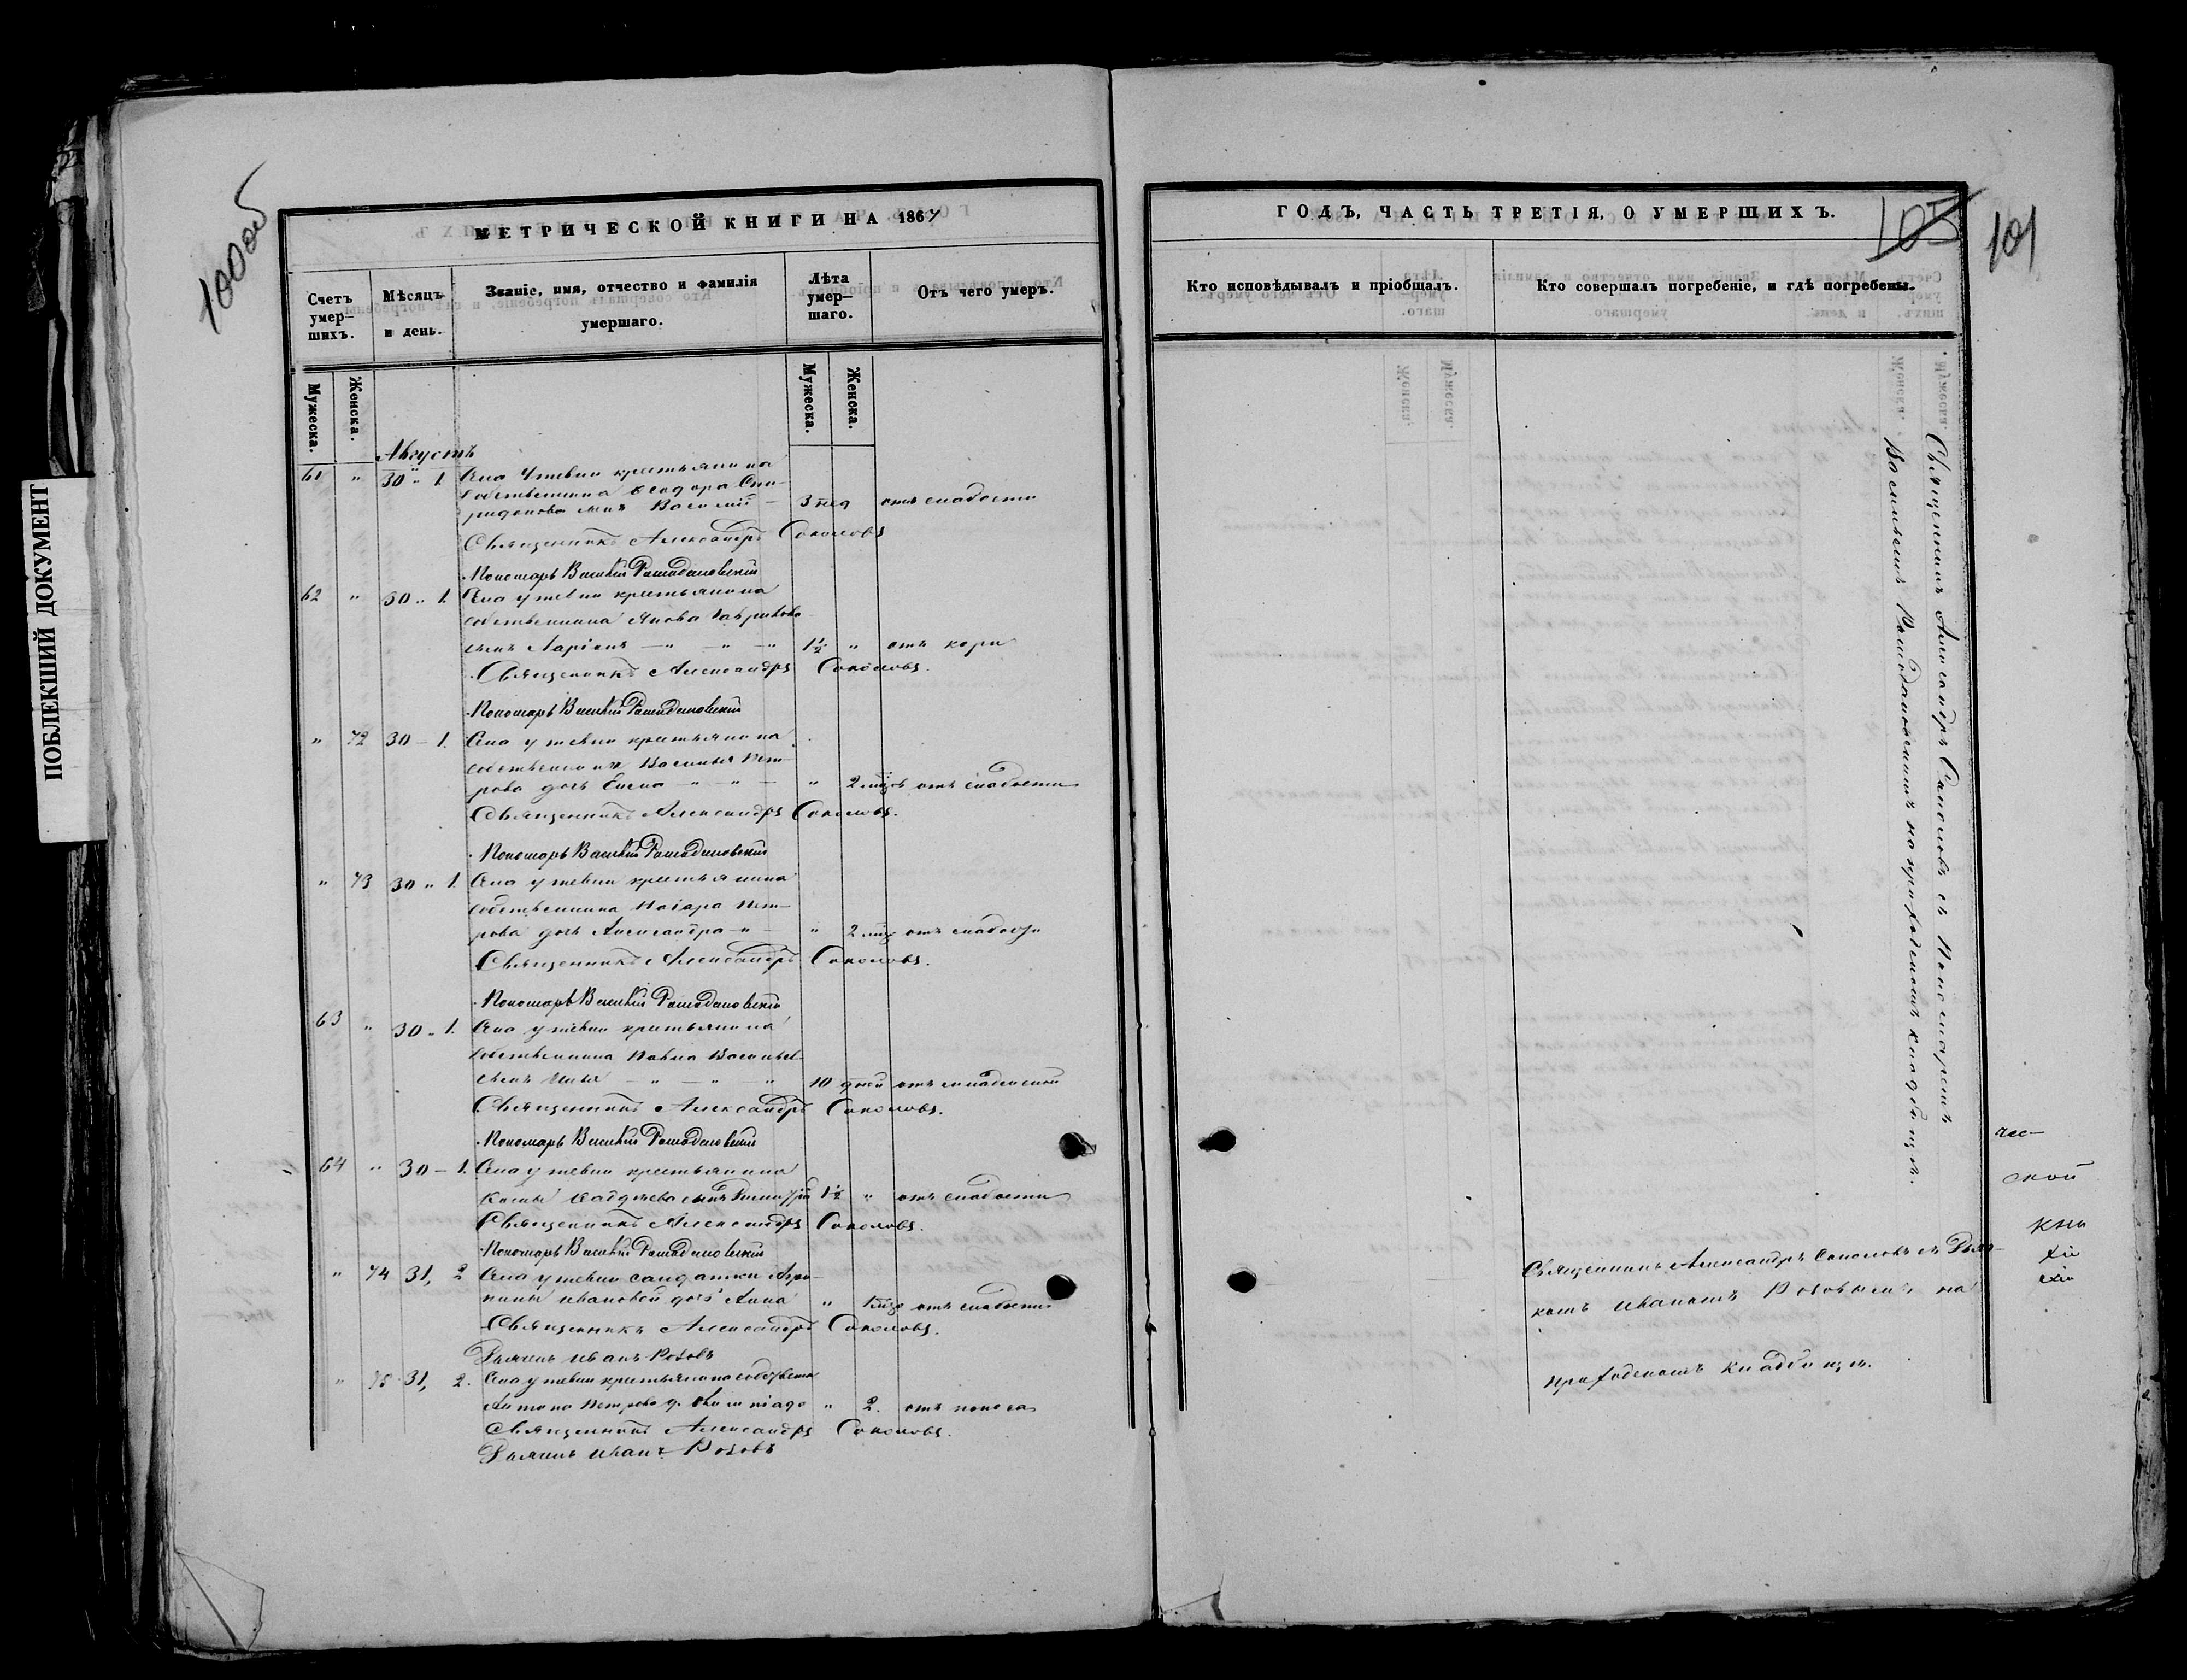 ПОБЛЕКШИЙ ДОКУМЕНТ
100об
МЕТРИЧЕСКОЙ КНИГИ НА 1867
Счетъ умер-шихъ.
Мѣсяцъ и день.
Званіе, имя, отчество и фамилія умершаго.
Лѣта умер-шаго.
Отъ чего умеръ.
Мужеска.
Женска.
Мужеска.
Женска.
Августъ
61 " 30 " 1. Села Утевки крестьянина
собственника Ѳеодора Спи-
ридонова сынъ Василій 3 нед отъ слабости
Священникъ Александръ Соколовъ
Пономарь Василій
62 " 30 " 1. Села Утевки крестьянина
собственника Якова Гаврилова
сынъ Ларіонъ — " — " — " 1½ " отъ кори
Священникъ Александръ Соколовъ.
Пономарь Василій
" 72 30 — 1. Села Утевки крестьянина
собственника Василья Пет-
рова дочь Елена — " — " — " 2 мѣс отъ слабости
Священникъ Александръ Соколовъ.
Пономарь Василій
" 73 30 " 1. Села Утевки крестьянина
собственника Назара Пет-
рова дочь Александра — " — " 2 мѣс отъ слабости
Священникъ Александръ Соколовъ.
Пономарь Василій
63 " 30 " 1. Села Утевки крестьянина
собственника Павла Васильева
сынъ Илья — " — " — " 10 дней отъ младенской
Священникъ Александръ Соколовъ.
Пономарь Василій
64 " 30 — 1. Села Утевки крестьянина
Козмы сынъ 1½ " отъ слабости
Священникъ Александръ Соколовъ.
Пономарь Василій
" 74 31, 2 Села Утевки солдатки Агри-
пины Ивановой дочь Анна " отъ слабости
Священникъ Александръ Соколовъ.
Дьяконъ Иванъ Розовъ
" 75 31, 2. Села Утевки крестьянина собственника
Антона Петрова д. " 2. отъ поноса
Священникъ Александръ Соколовъ.
Дьяконъ Иванъ Розовъ
ГОДЪ, ЧАСТЬ ТРЕТІЯ, О УМЕРШИХЪ.
103
101
Кто исповѣдывалъ и пріобщалъ.
Кто совершалъ погребеніе, и гдѣ погребены.
Священникъ Александръ Соколовъ съ Пономаремъ
Васильемъ на приходскомъ кладбищѣ.
Священникъ Александръ Соколовъ съ Дьяко-
номъ Иваномъ Розовымъ, на
приходскомъ кладбищѣ.
чес-
ской
кни